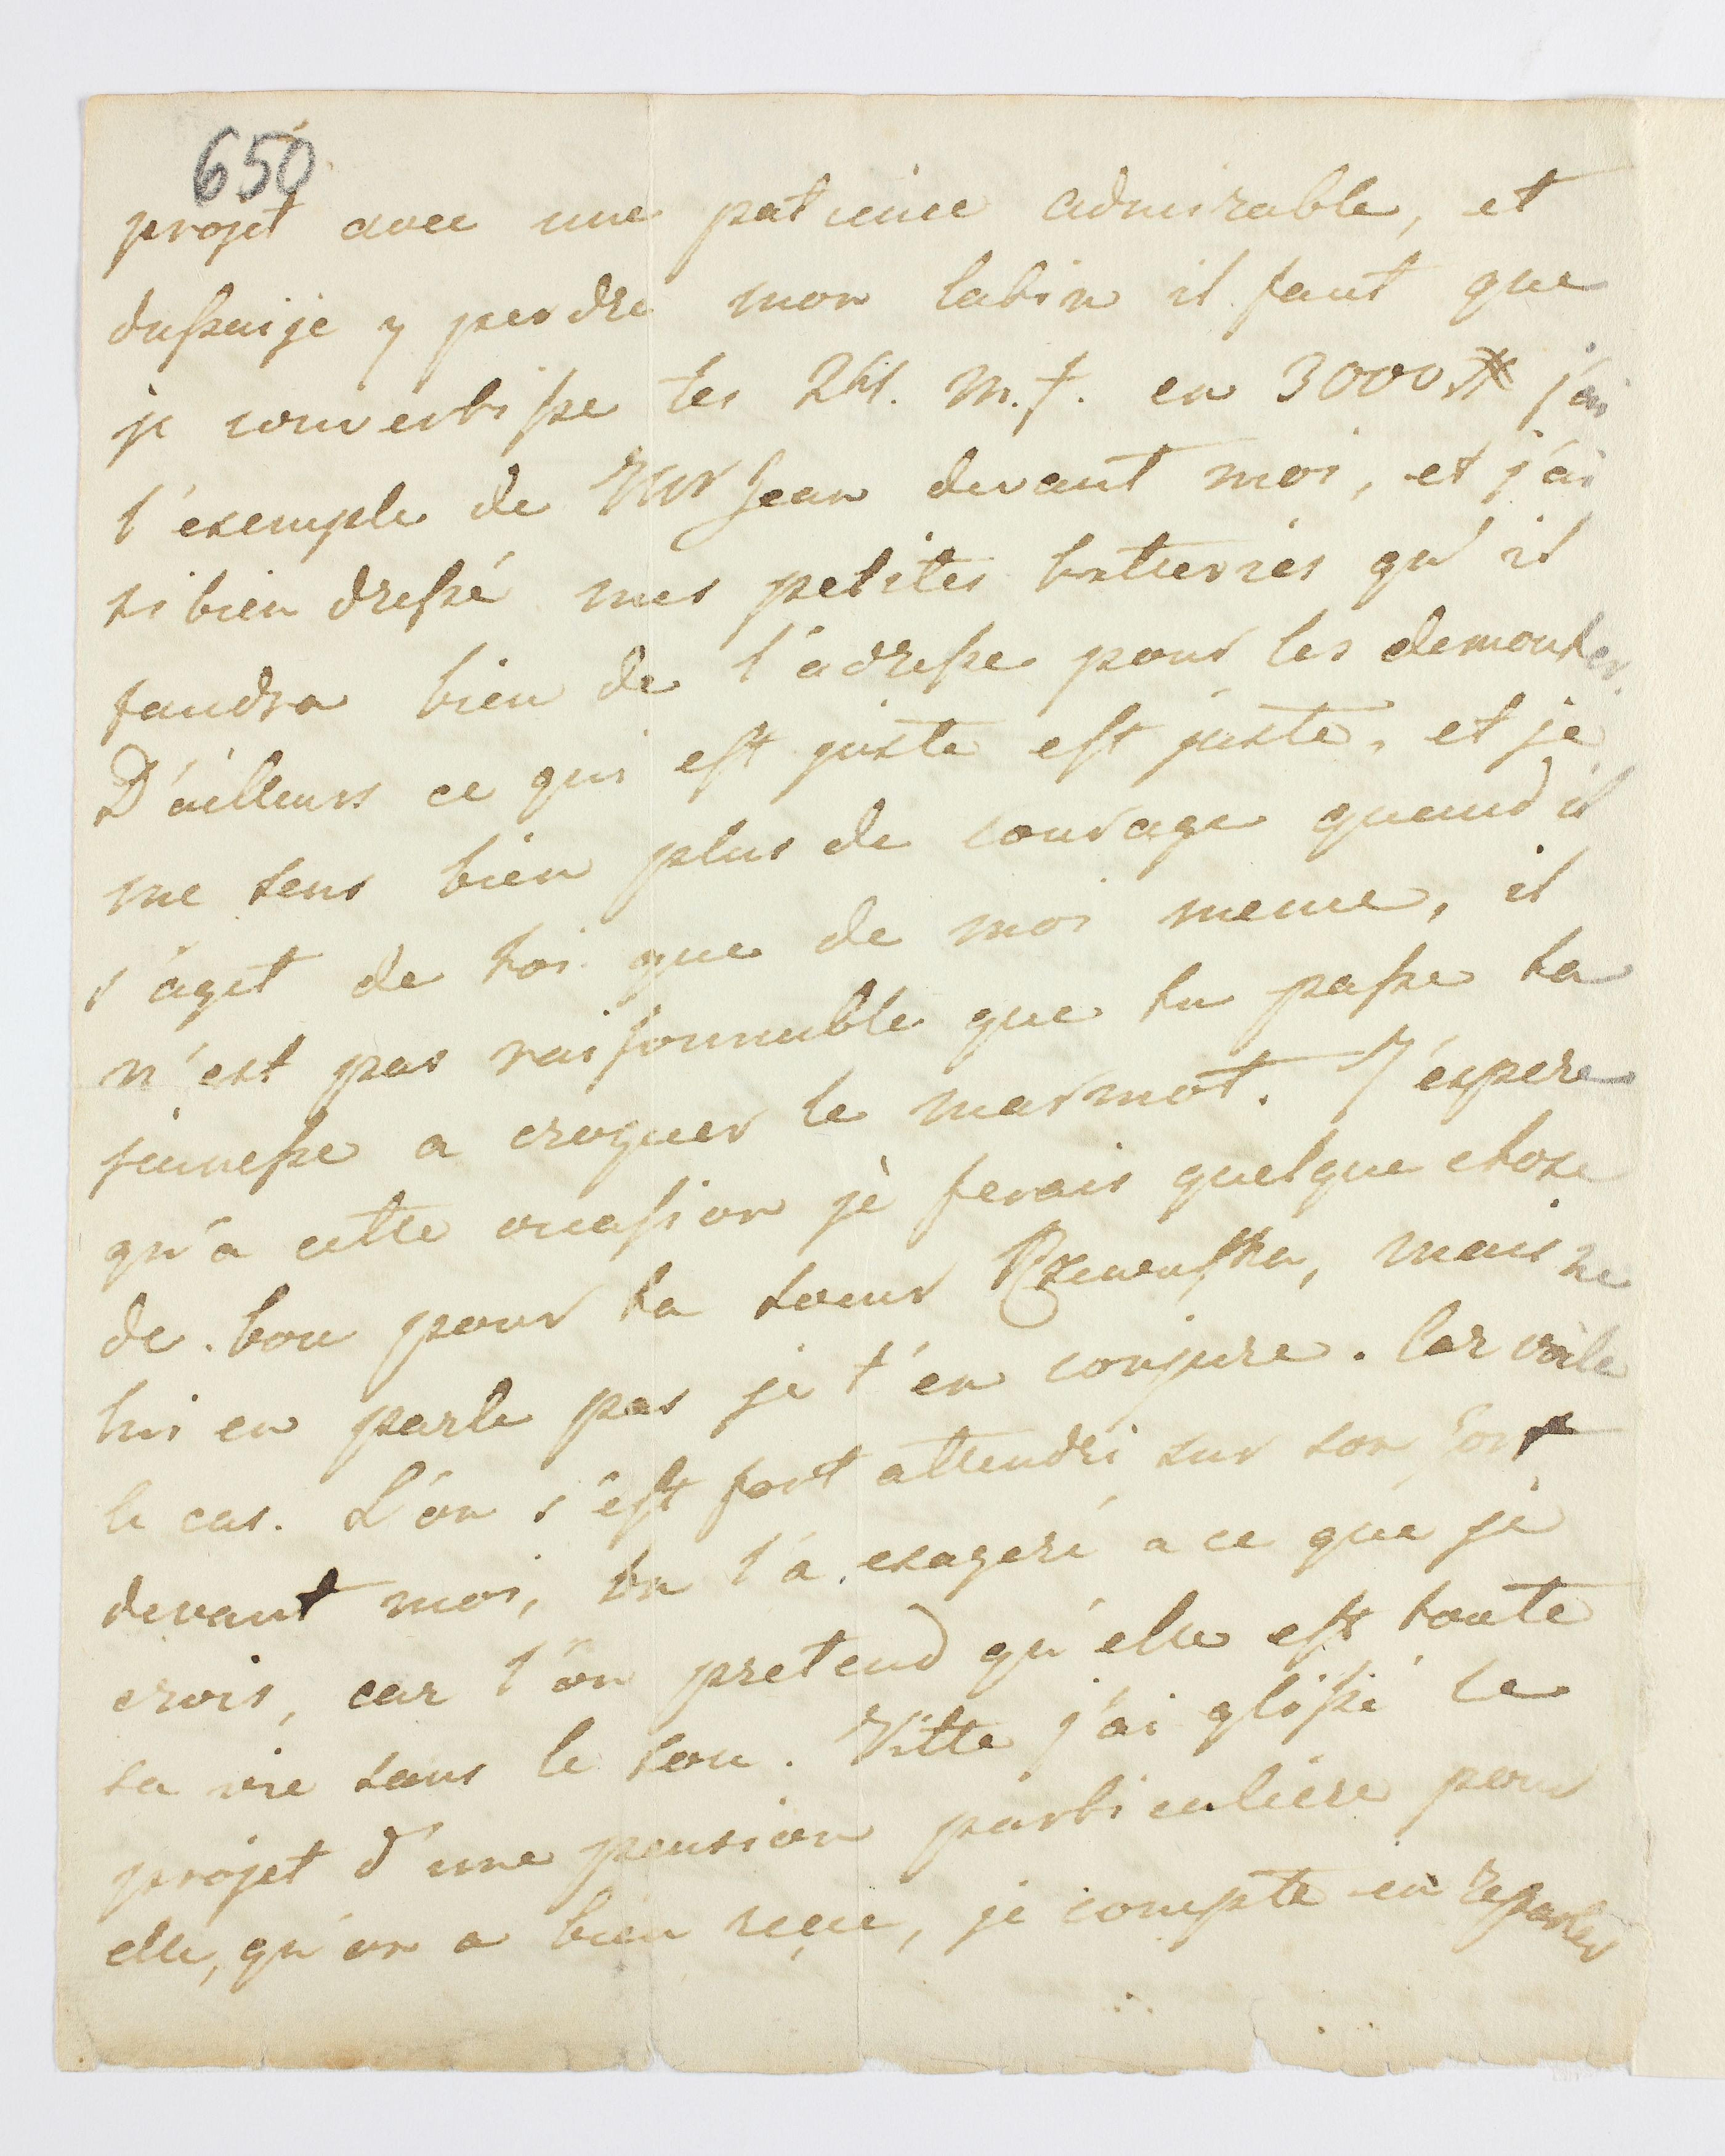 650
projet avec une patience admirable, et
dussai je y perdre mon latin il faut que
je convertisse tes 2 M. f. en 3000 j'ai
l'exemple de Mr Jean devant moi, et j'ai
si bien dressé mes petites batteries qu'il
faudra bien de l'adresse pour les demonter.
D'ailleurs ce qui est juste est juste, et je
me sens bien plus de courage quand il
s'agit de toi que de moi meme, il
n'est pas raisonnable que tu passe ta
jeunesse a croquer le marmot. J'espere
qu'a cette occasion je ferais quelque chose
de bon pour ta soeur Rzewuska, mais ne
lui en parle pas je t'en conjure. Car voila
le cas. L'on s'est fort attendri sur son sort
devant moi, on l'a exageré a ce que je
crois, car l'on pretend qu'elle est toute
sa vie sans le sou. Vitte j'ai glissé le
projet d'une pension particuliere pour
elle, qu'on a bien reçu, je compte en reparler